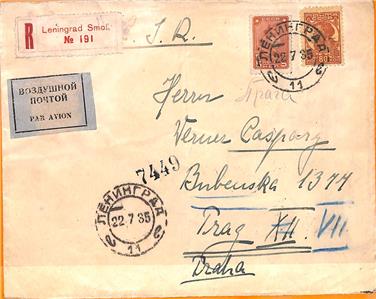 R
Leningrad Smol.
№ 191
S. R.
ЛЕНИНГРАД
22 7 35
11
ВОЗДУШНОЙ
ПОЧТОЙ
PAR AVION
Herrn
Прага
Verner Caspary
7449
Bubenska 1377
ЛЕНИНГРАД
22.7.35
11
Prag XII VII
Praha